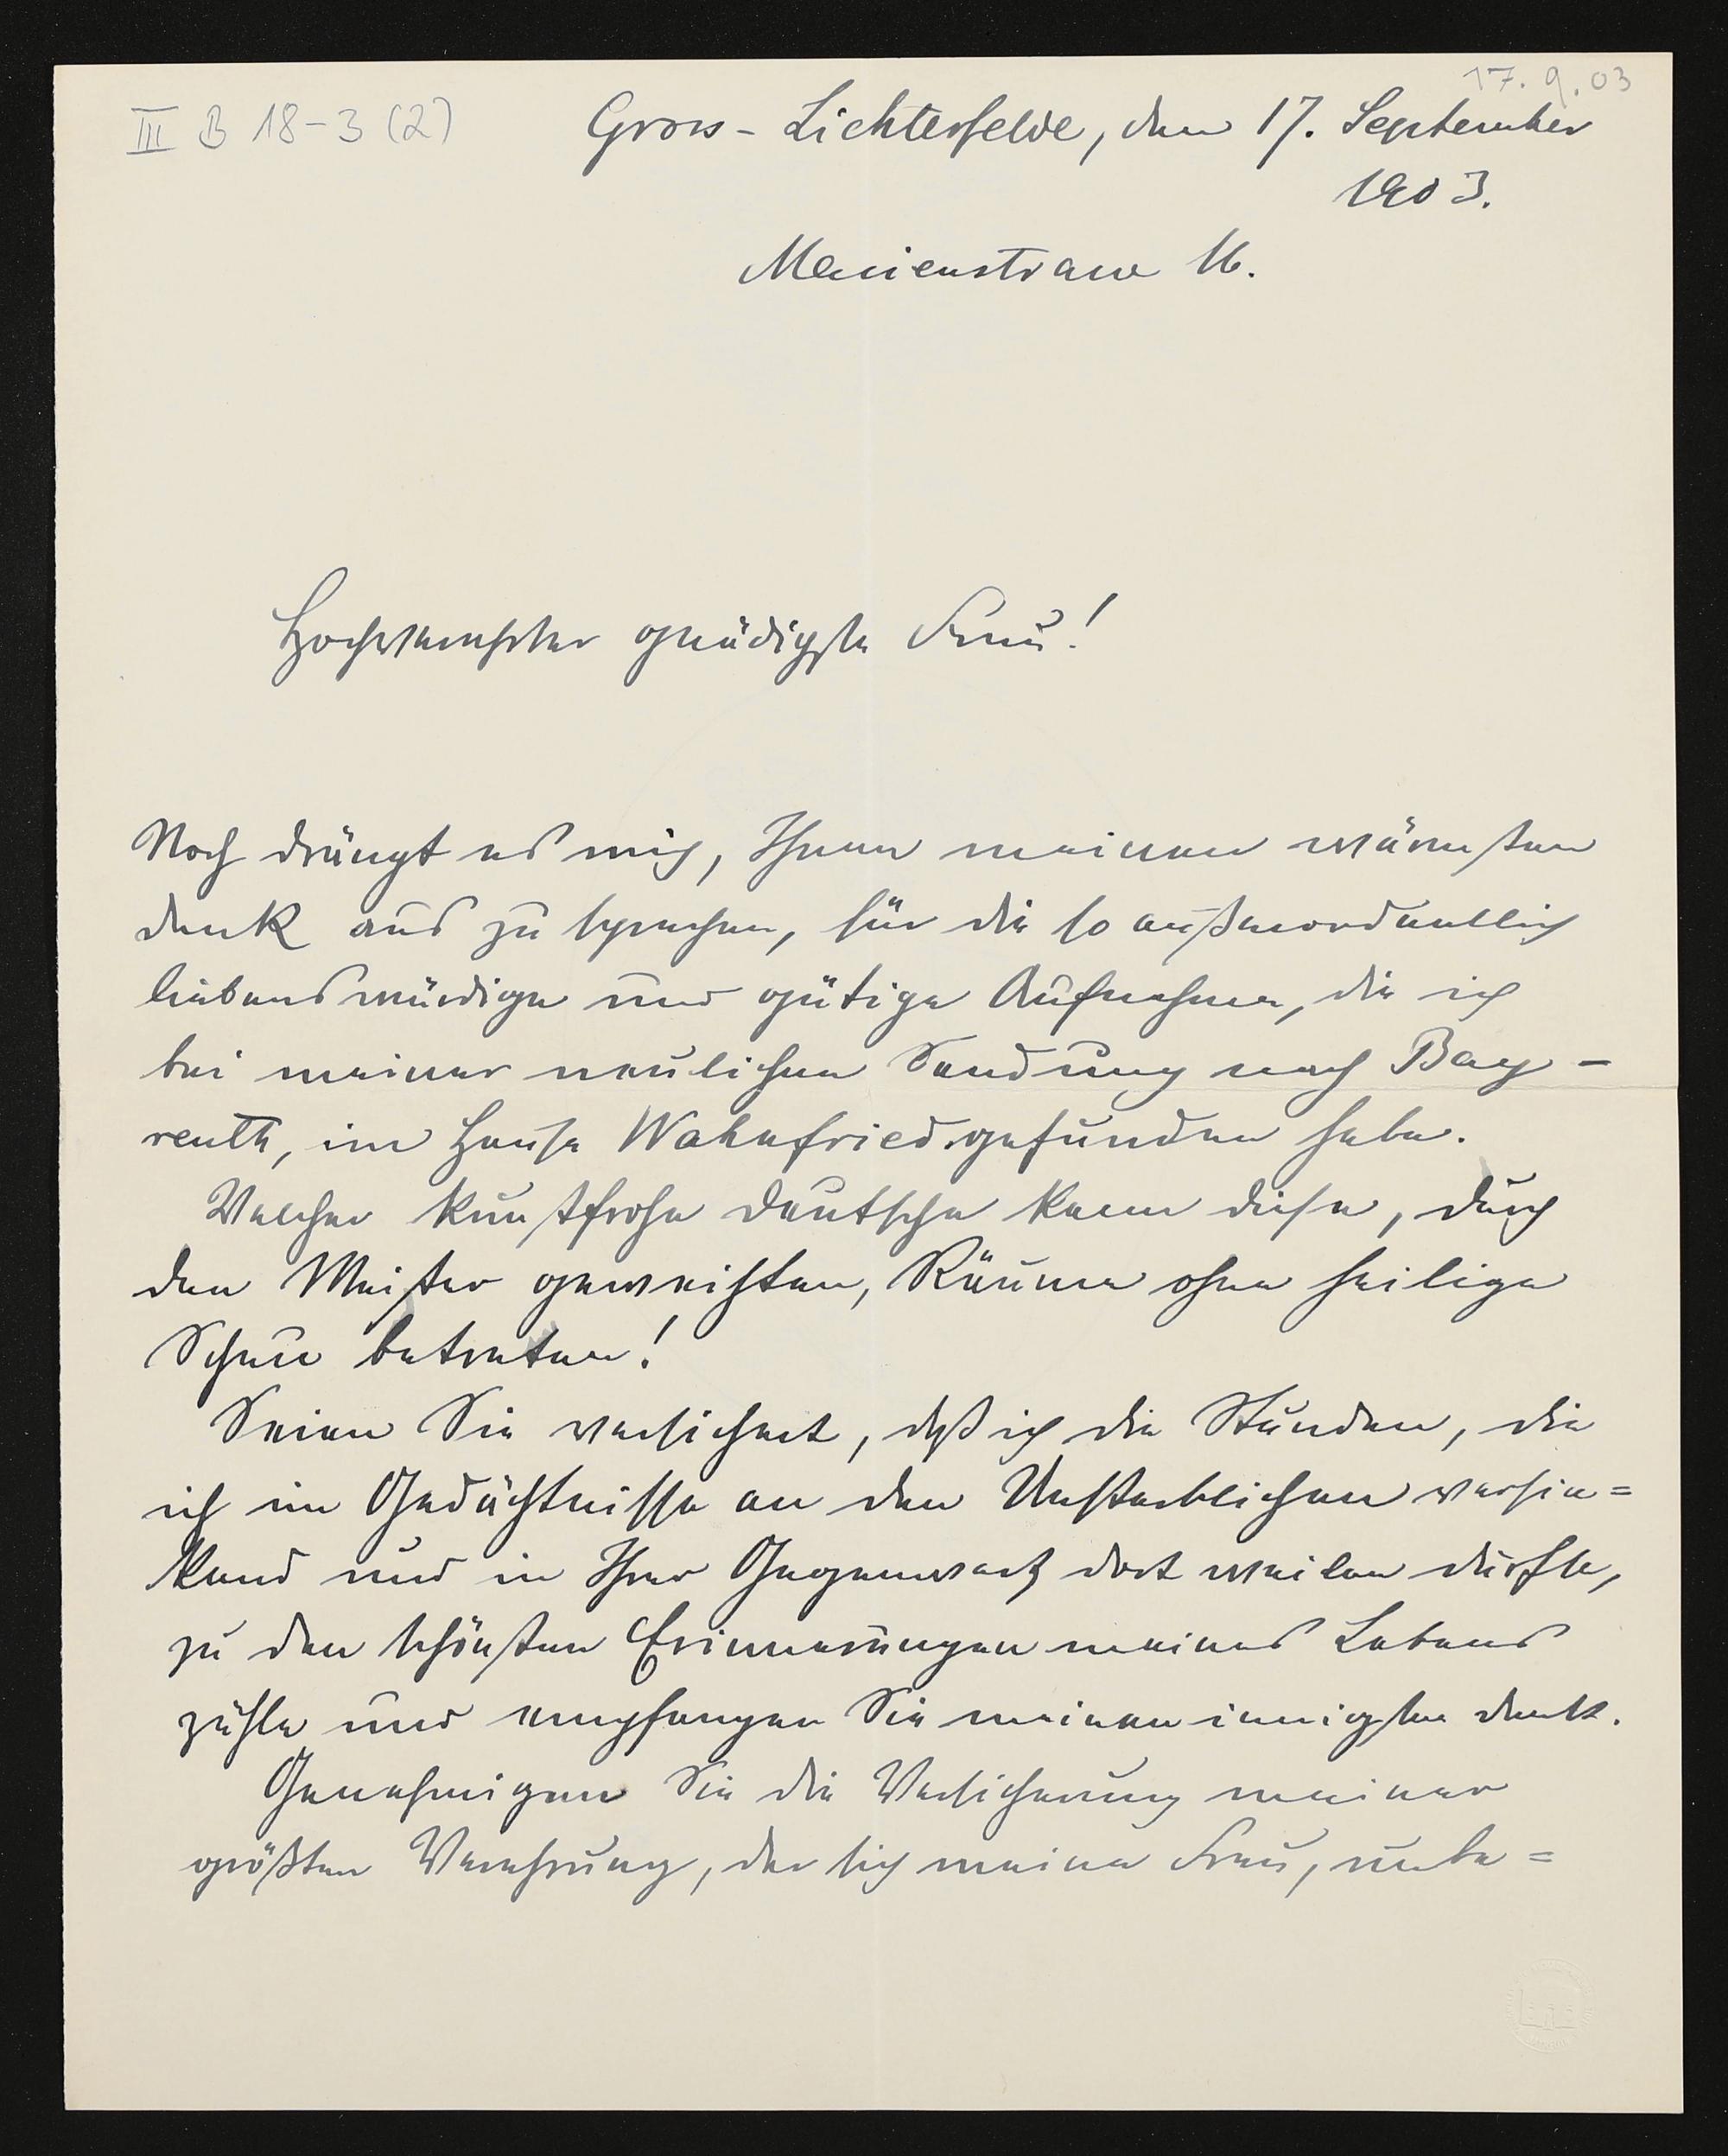 17. 9. 03
III B 18-3 (2)
Gross-Lichterfelde, den 17. September
1903.
Marienstrasse 16.
Hochverehrter gnädigste Frau!
Noch drängt es mich, Ihnen meinen wärmsten
Dank aus zu sprechen, für die so außerordentlich
liebenswürdige und gütige Aufnahme, die ich
bei meiner neulichen Sendung nach Bay-
reuth, im Hause Wahnfried gefunden habe.
Welcher kunstfrohe Deutsche kann diese, durch
den Meister geweihten, Räume ohne heilige
Scheu betreten!
Seien Sie versichert, daß ich die Stunden, die
ich im Gedächtnisse an den Unsterblichen versin=
kend und in Ihrer Gegenwart dort weilen durfte,
zu den schönsten Erinnerungen meines Lebens
zähle und empfangen Sie meinen innigsten Dank.
Genehmigen Sie die Versicherung meiner
größten Verehrung, der sich meine Frau, unbe=